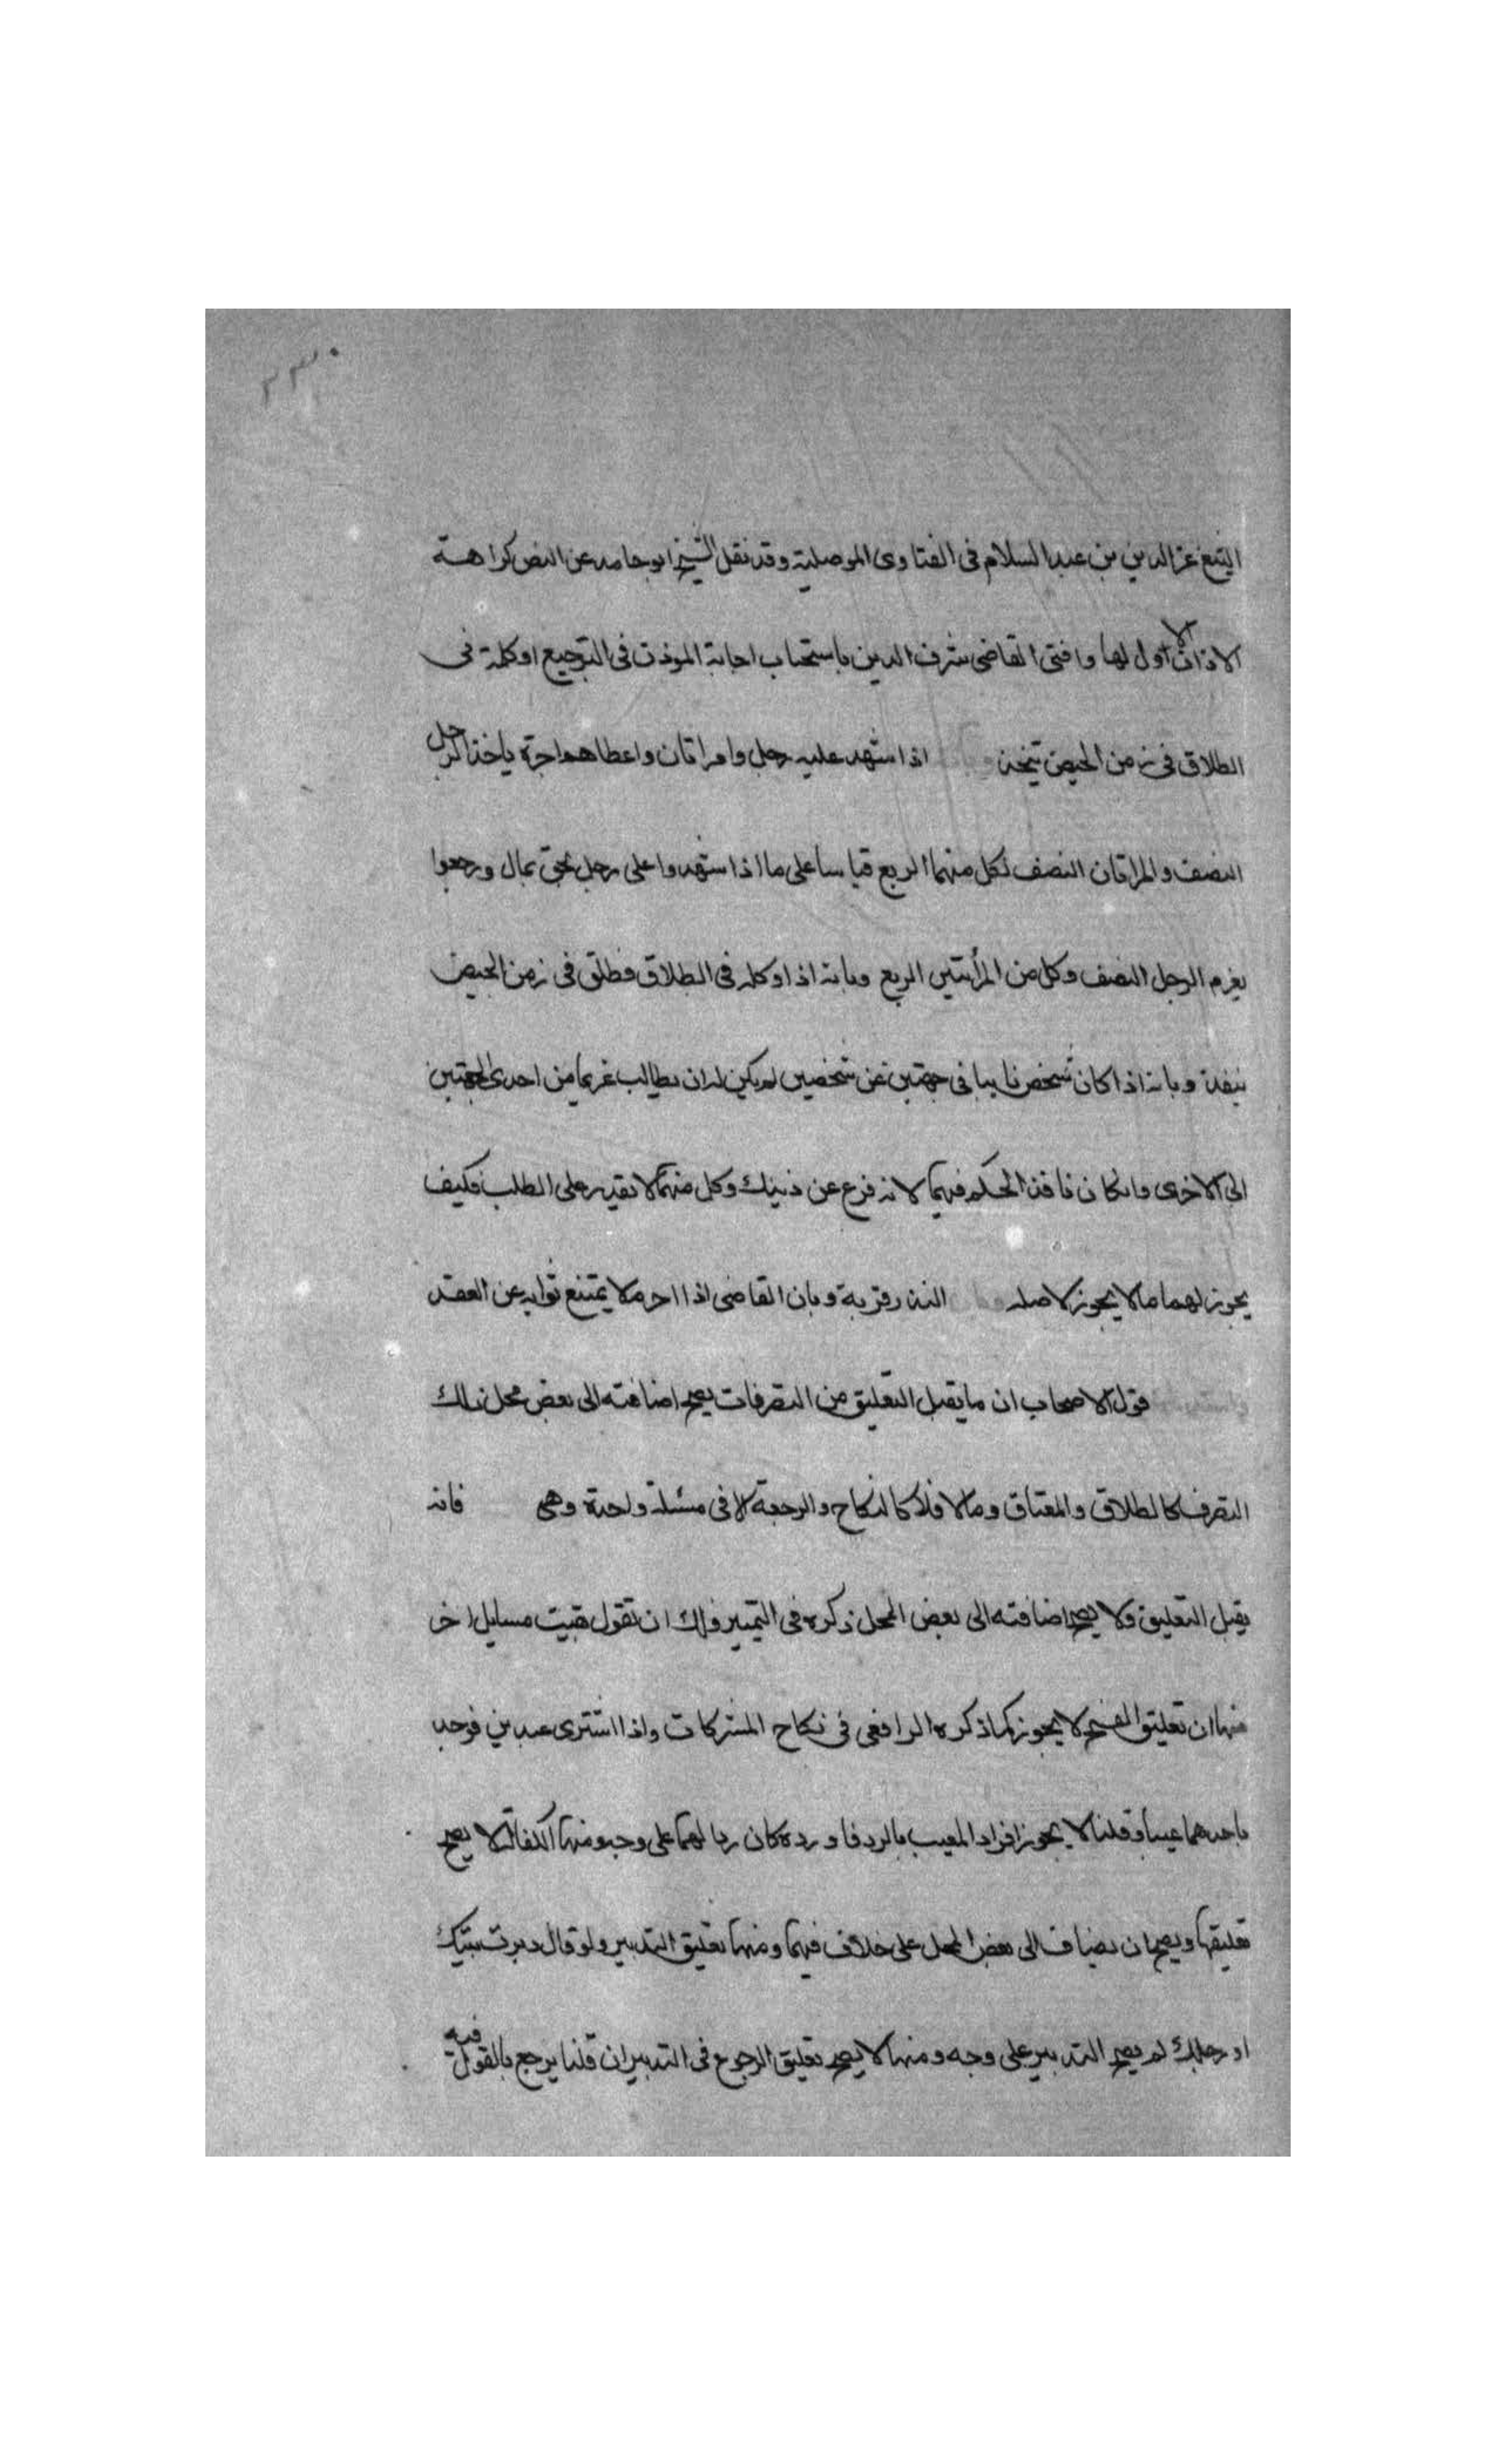 ٢٣٠
الشيخ عز الدين بن عبد السلام في الفتاوى الموصلية وقد نقل الشيخ ابو حامد عن النص كراهية
الاذان الاول لها وافتى القاضي شرف الدين باستحباب اجابة الموذن في الترجيع او كلة في
الطلاق في زمن الحيض اذا شهد عليه رجل وامراتان واعطاهم اجرة ياخذ الرجل
النصف والمراتان النصف لكل منهما الربع قياسا على ما اذا شهدوا على رجل بحق بمال ورجعوا
يغرم الرجل النصف وكل من المرأتين الربع وبانه اذا وكله في الطلاق فطلق في زمن الحيض
ينفذ وبانه اذا كان شخص نايبا في جهتين عن شخصين لم يكن له ان يطالب غريما من احدى الجهتين
الى الاخرى وان كان نافذ الحكم فيهما لانه فرع عن ذينك وكل منهما لا يقدر على الطلب فكيف
يجوز لهما ما لا يجوز لاصله النذر قربة وبان القاضي اذا احرم لا يمتنع نوابه عن العقد
قول الاصحاب ان ما يقبل التعليق من التصرفات يصح اضافته الى بعض محل ذلك
التصرف كالطلاق والعتاق وما لا فلا كالنكاح والرجعة الا في مسئلة واحدة وهي فانه
يقبل التعليق ولا يصح اضافته الى بعض المحل ذكره في ولك ان تقول بقيت مسايل اخر
منها ان تعليق الفسخ لا يجوز كما ذكره الرافعي في نكاح المشركات واذا اشترى عبدين فوجد
باحدهما عيبا وقلنا لا يجوز افراد المعيب بالرد فلو رده كان ردا لهما على وجه ومنها الكفالة لا يصح
تعليقها ويصح ان يضاف الى بعض المحل على خلاف فيهما ومنها تعليق التدبير ولو قال دبرت
او رجلك لم يصح التدبير على وجه ومنها لا يصح تعليق الرجوع في التدبير ان قلنا يرجع بالقول فيه